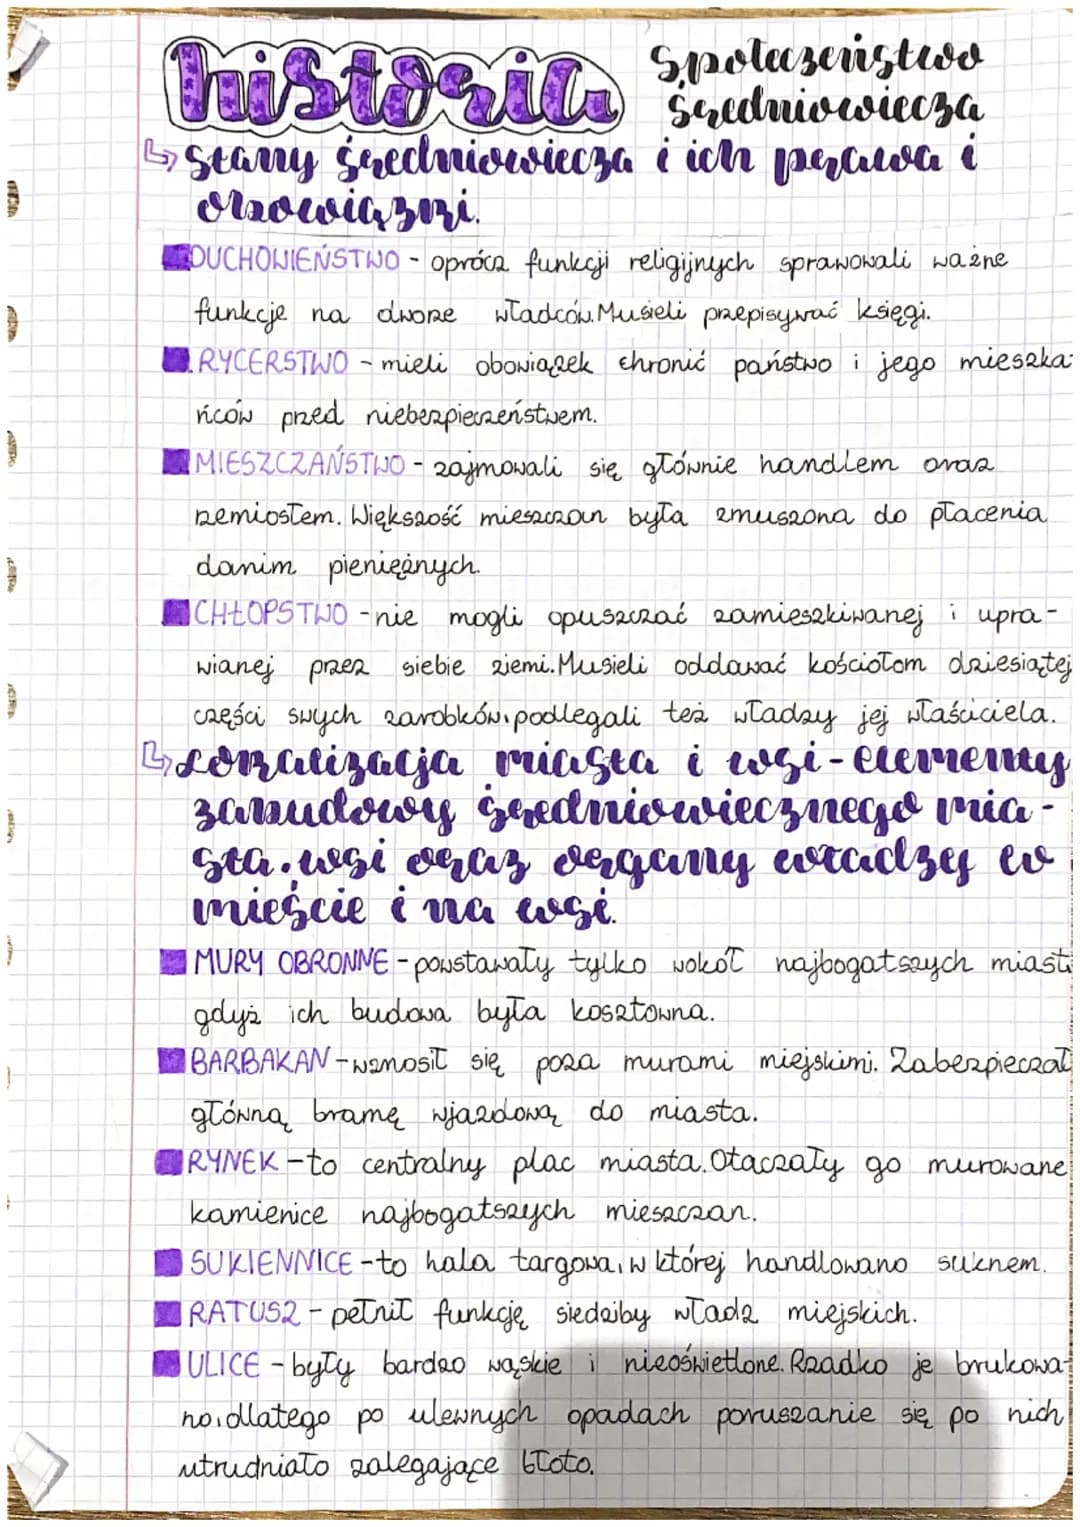 historia
Społeczeństwo
średniowiecza
Stany średniowiecza i ich prawa i
obowiązki.
DUCHOWIEŃSTWO - oprócz funkcji religijnych sprawowali ważne
funkcje na dworze władców. Musieli przepisywać księgi.
RYCERSTWO - mieli obowiązek chronić państwo i jego mieszka-
ńców przed niebezpieczeństwem.
MIESZCZAŃSTWO - zajmowali się głównie handlem oraz
rzemiosłem. Większość mieszczan była zmuszona do płacenia
danim pieniężnych.
CHŁOPSTWO - nie mogli opuszczać zamieszkiwanej i upra-
wianej przez siebie ziemi. Musieli oddawać kościołom dziesiątej
części swych zarobków, podlegali też władzy jej właściciela.
Lokalizacja miasta i wsi - elementy
zabudowy średniowiecznego mia-
sta, wsi oraz organy władzy w
mieście i na wsi.
MURY OBRONNE - powstawały tylko wokół najbogatszych miast,
gdyż ich budowa była kosztowna.
BARBAKAN - wznosił się poza murami miejskimi. Zabezpieczał
główną bramę wjazdową do miasta.
RYNEK - to centralny plac miasta. Otaczały go murowane
kamienice najbogatszych mieszczan.
SUKIENNICE - to hala targowa, w której handlowano suknem.
RATUSZ - pełnił funkcję siedziby władz miejskich.
ULICE - były bardzo wąskie i nieoświetlone. Rzadko je brukowa-
no, dlatego po ulewnych opadach poruszanie się po nich
utrudniało zalegające błoto.